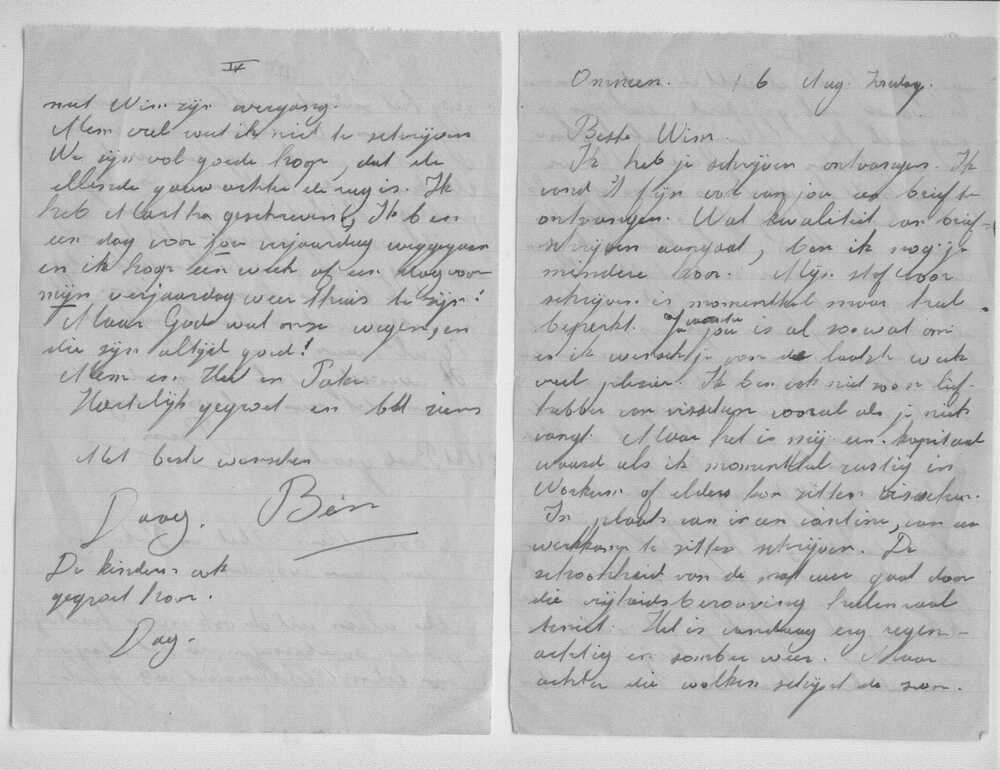 IV
met Wim zijn overgang.
Mem veel weet ik niet te schrijven
We zijn vol goede hoop, dat de
ellende gauw achter de rug is. Ik
heb Martha geschreven, Ik ben
een dag voor jou verjaardag weggegaan
en ik hoop een week of een dag voor
mijn verjaardag weer thuis te zijn!
Maar God wat onze wegen, en
die zijn altijd goed!
Mem en Heit en
Hartelijk gegroet en tot ziens
Met beste wenschen
Daag. Bém
De kinders ook
gegroet hoor.
Dag.
Ommen. 6 Aug. Zondag.
Beste Wim.
Ik heb je schrijven ontvangen. Ik
vond 't fijn ook van jou een brief te
ontvangen. Wat kwaliteit van brief-
schrijven aangaat, ben ik nog je
mindere hoor. Mijn stof voor
schrijven is momenteel maar heel
beperkt. Je vacantie is al zoowat om
en ik wensch je voor de laatste week
veel plezier. Ik ben ook niet zoo'n lief-
hebber van visschen vooral als je niets
vangt. Maar het is mij een kapitaal
waard als ik momenteel rustig in
Workum of elders kon zitten visschen.
In plaats van in een cantine, van een
werkkamp te zitten schrijven. De
schoonheid van de natuur gaat door
die vrijheidsberooving heelemaal
teniet. Het is vandaag erg regen-
achtig en somber weer. Maar
achter die wolken schijnt de zon.